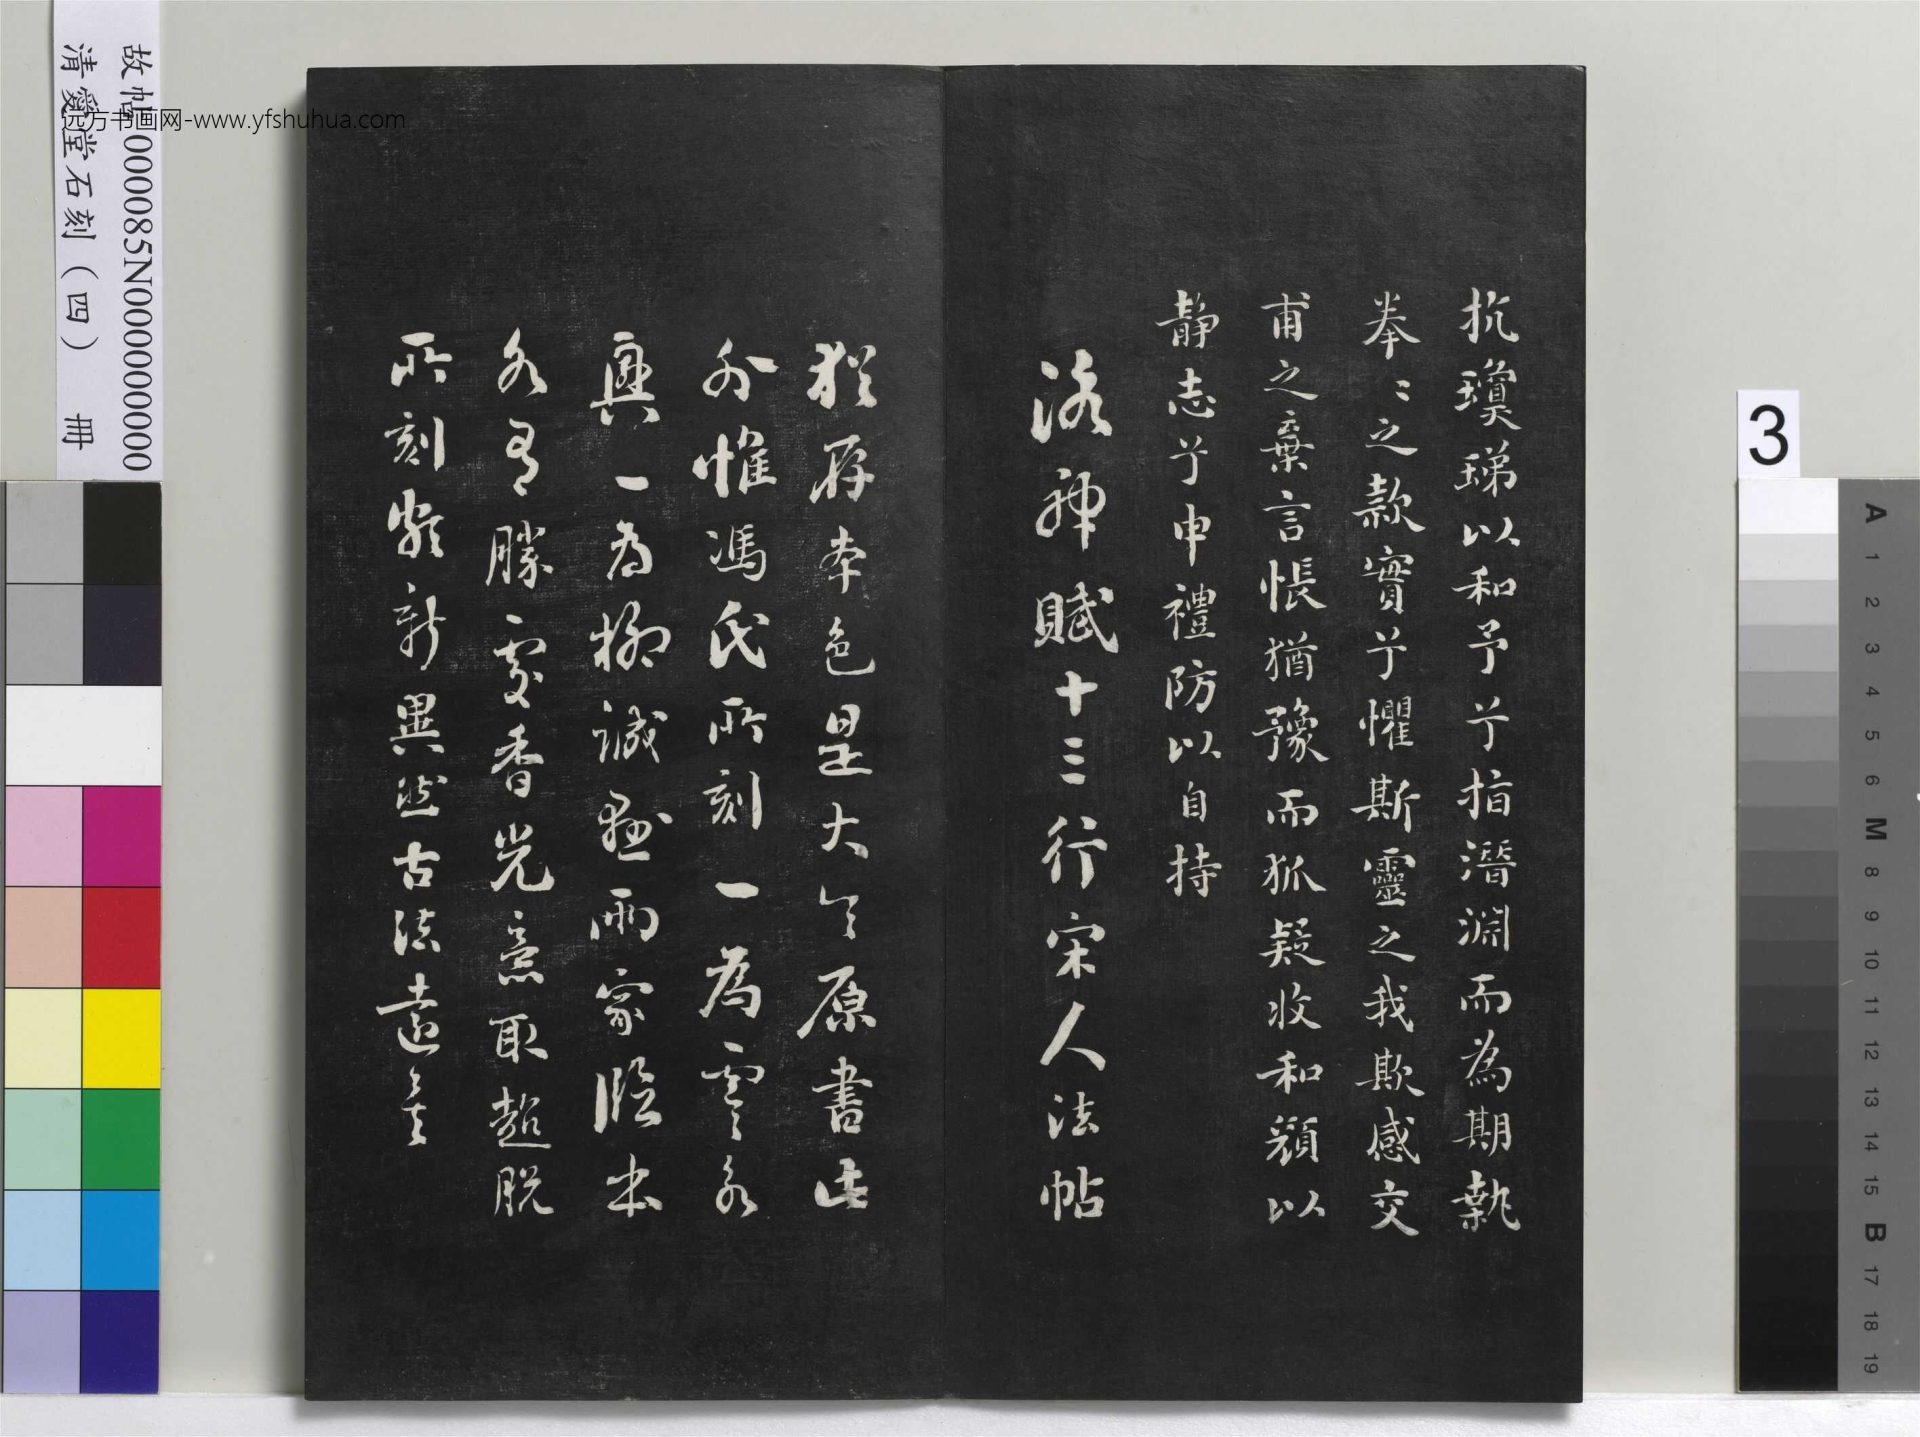 故帖0000085N000000000
清愛堂石刻（四） 冊
远方书画网-www.yfshuhua.com
抗瓊珶以和予兮指潛淵而為期執
拳〻之款實兮懼斯靈之我欺感交
甫之棄言悵猶豫而狐疑收和顏以
静志兮申禮防以自持
洛神賦十三行宋人法帖
猶存本色是大令原書此
外惟馮氏所刻一為虞永
興一為柳誠懸兩家臨本
各有勝處香光意取超脫
所刻新異然古法遠矣
3
A 1 2 3 4 5 6 M 8 9 10 11 12 13 14 15 B 17 18 19